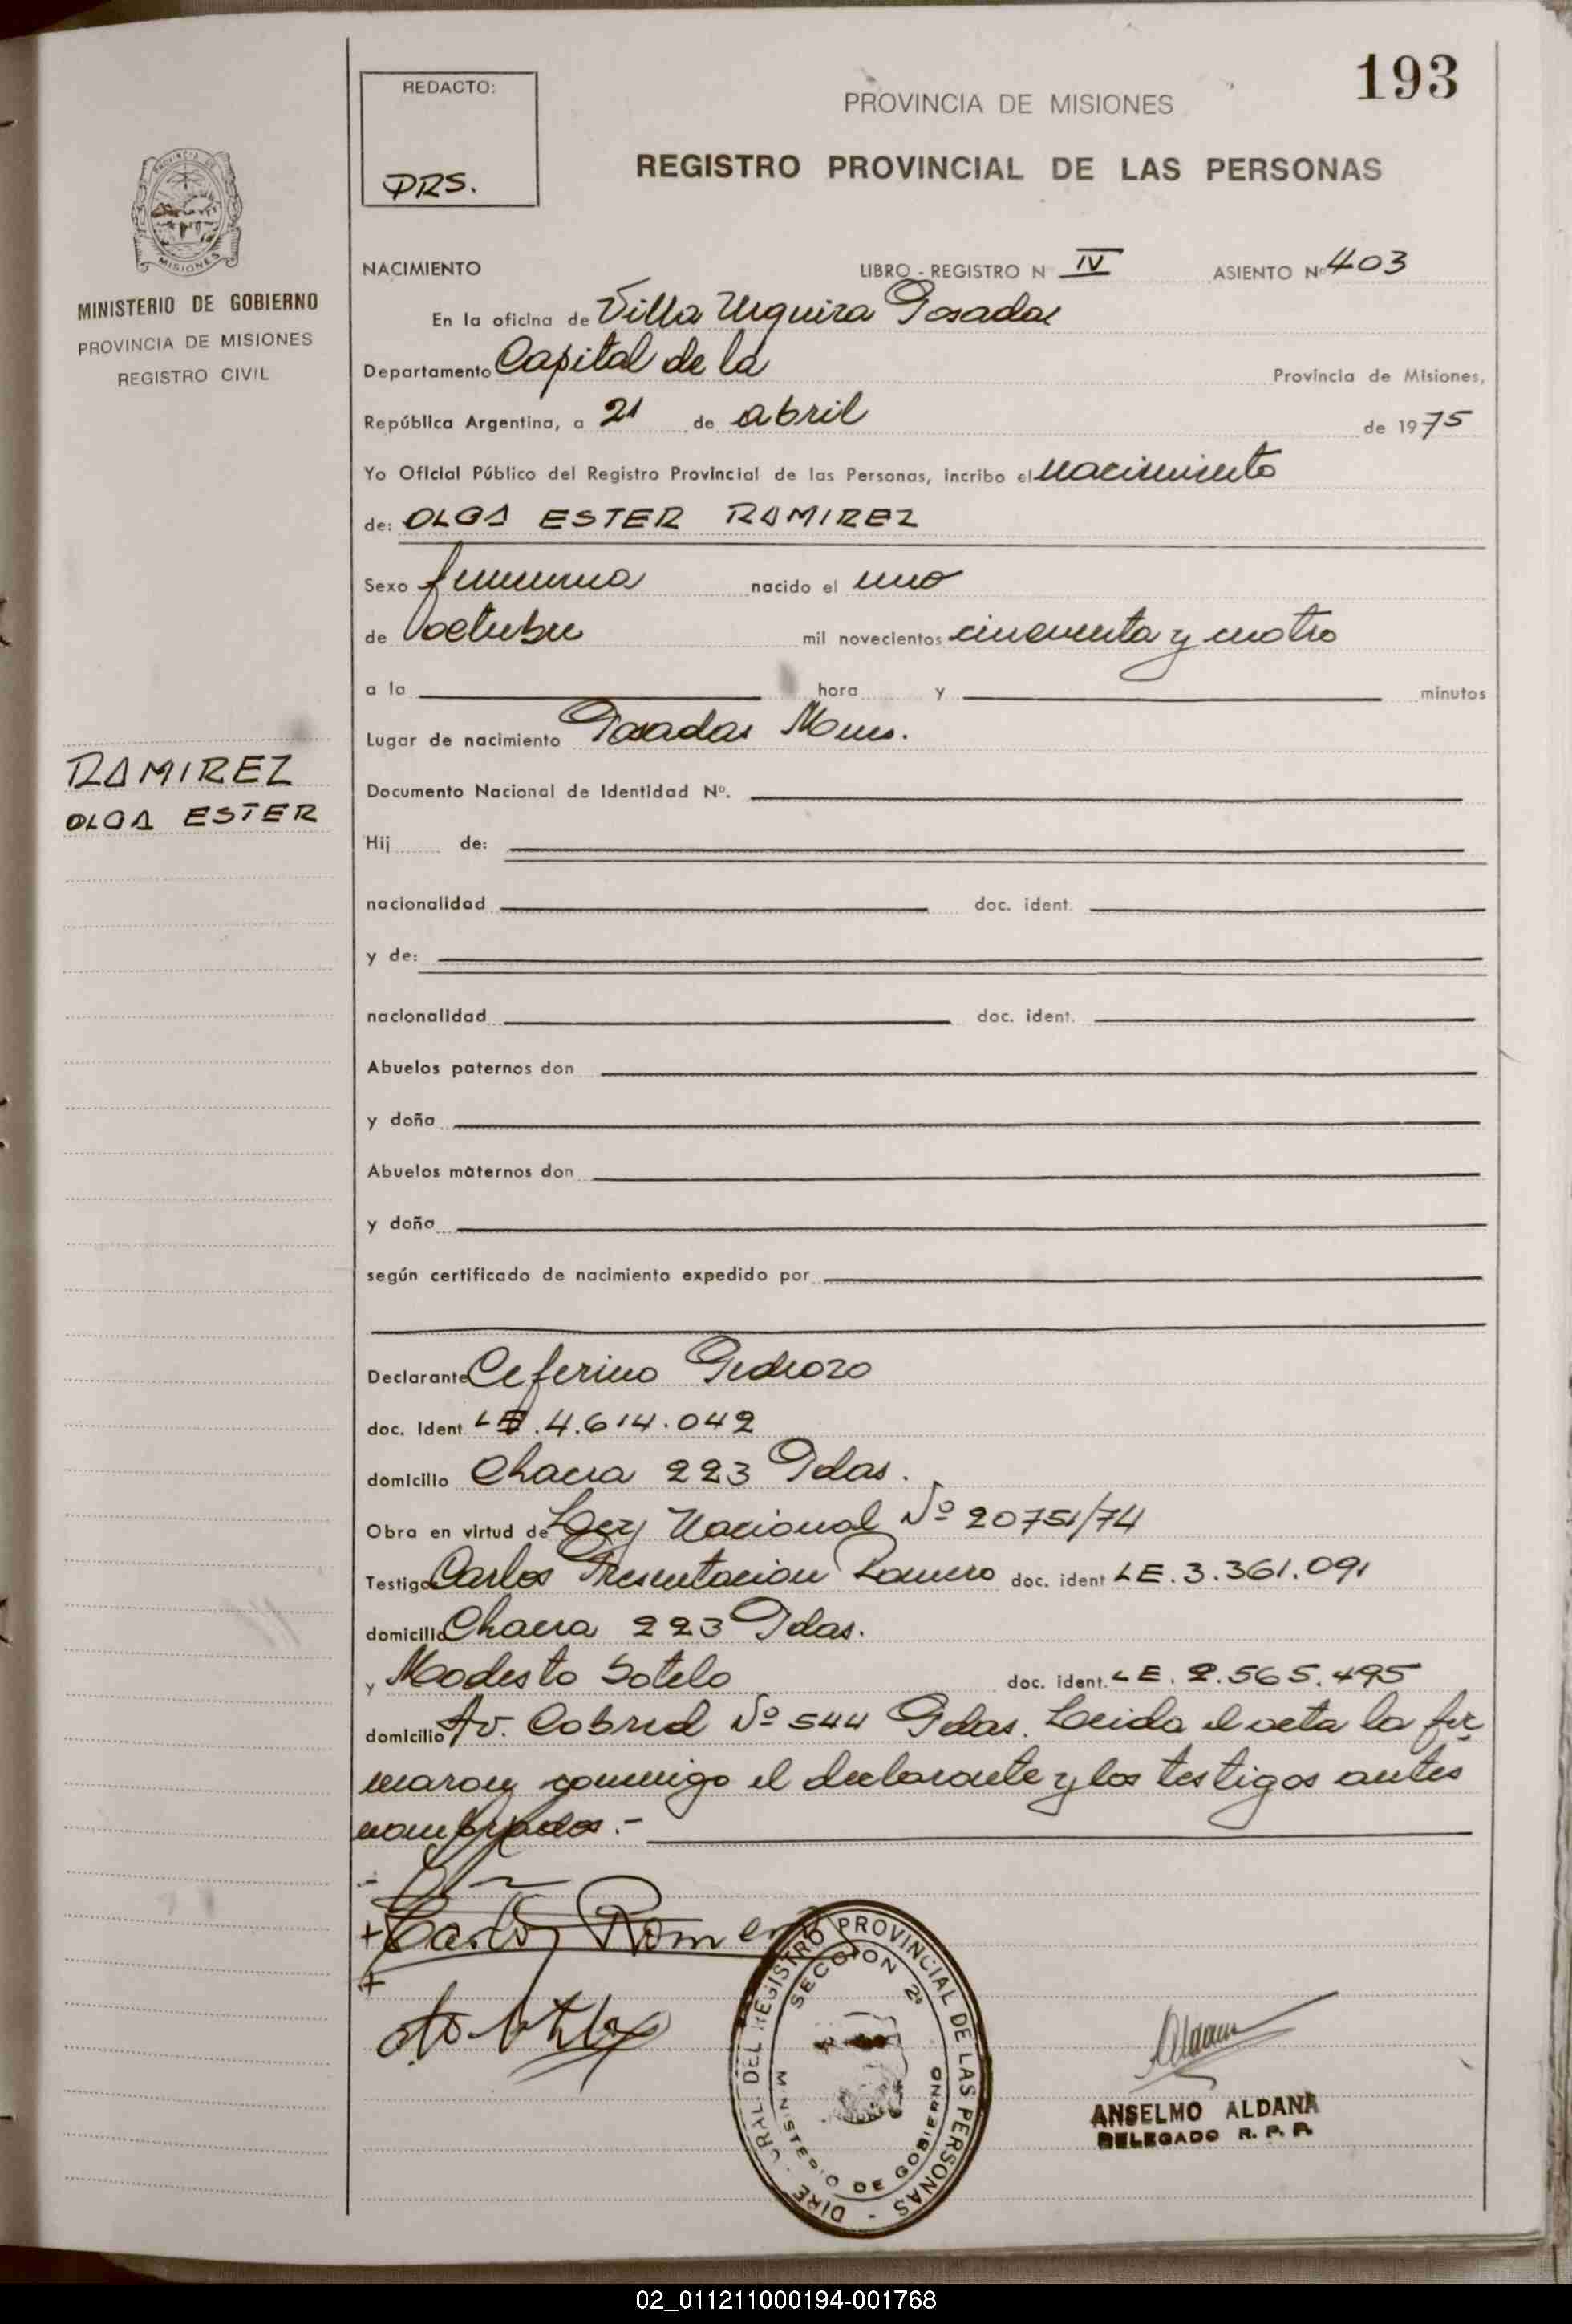 193
REDACTO:
PRS.
PROVINCIA DE MISIONES
REGISTRO PROVINCIAL DE LAS PERSONAS
PROVINCIA DE
MISIONES
MINISTERIO DE GOBIERNO
PROVINCIA DE MISIONES
REGISTRO CIVIL
NACIMIENTO LIBRO - REGISTRO N IV ASIENTO Nº 403
En la oficina de Villa Urquiza Posadas
Departamento Capital de la Provincia de Misiones,
República Argentina, a 21 de abril de 1975
Yo Oficial Público del Registro Provincial de las Personas, incribo el nacimiento
de: OLGA ESTER RAMIREZ
Sexo femenino nacido el uno
de octubre mil novecientos cincuenta y cuatro
a la hora y minutos
Lugar de nacimiento Posadas Mnes.
RAMIREZ
OLGA ESTER
Documento Nacional de Identidad Nº.
Hij de:
nacionalidad doc. ident.
y de:
nacionalidad doc. ident.
Abuelos paternos don
y doña
Abuelos maternos don
y doña
según certificado de nacimiento expedido por
Declarante Ceferino Pedrozo
doc. Ident LE.4.614.042
domicilio Chacra 223 Pdas.
Obra en virtud de Ley Nacional Nº 20751/74
Testigos Carlos Presentacion Romero doc. ident LE.3.361.091
domicilio Chacra 223 Pdas.
y Modesto Sotelo doc. ident. LE.2.565.495
domicilio Av. Cabred Nº 544 Pdas. Leida el acta la fir
maron conmigo el declarante y los testigos antes
nombrados.-
+ Carlos Romero
+
DEL REGISTRO PROVINCIAL DE LAS PERSONAS -
SECCION 2ª
MINISTERIO DE GOBIERNO
ANSELMO ALDANA
DELEGADO R. P. P.
02_011211000194-001768